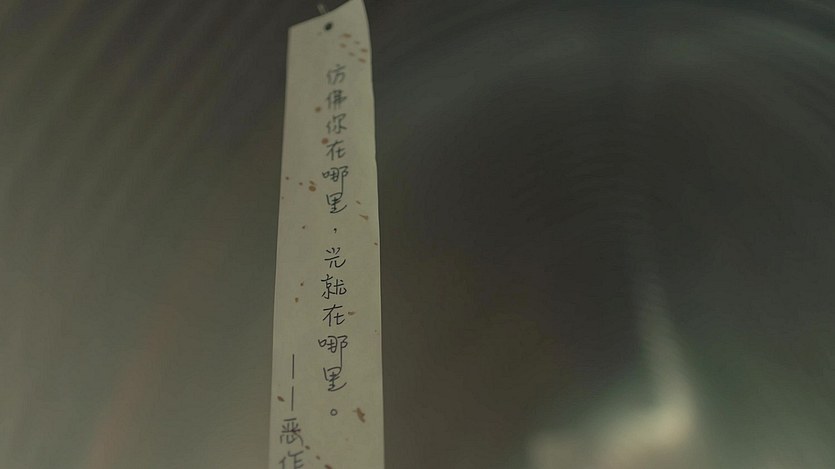 仿佛你在哪里，光就在哪里。
——恶作